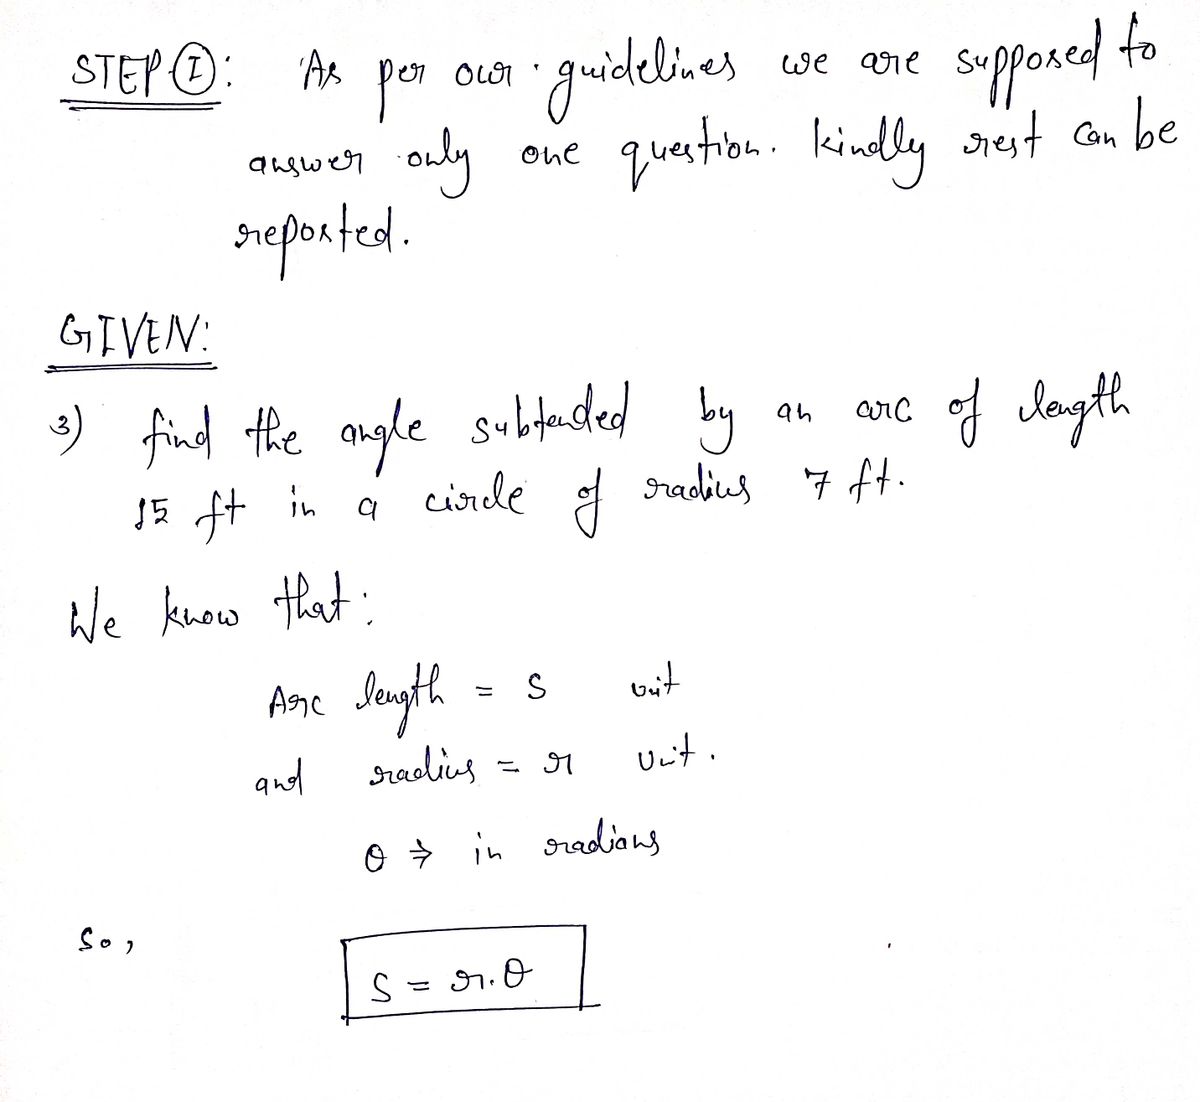 STEP (I): As per our guidelines we are supposed to
answer only one question. kindly rest can be
reposted.
GIVEN:
3) find the angle subtended by an arc of length
15 ft in a circle of radius 7 ft.
We know that:
Arc length = S unit
and radius = r unit.
θ ⇒ in radians
So,
S = r.θ